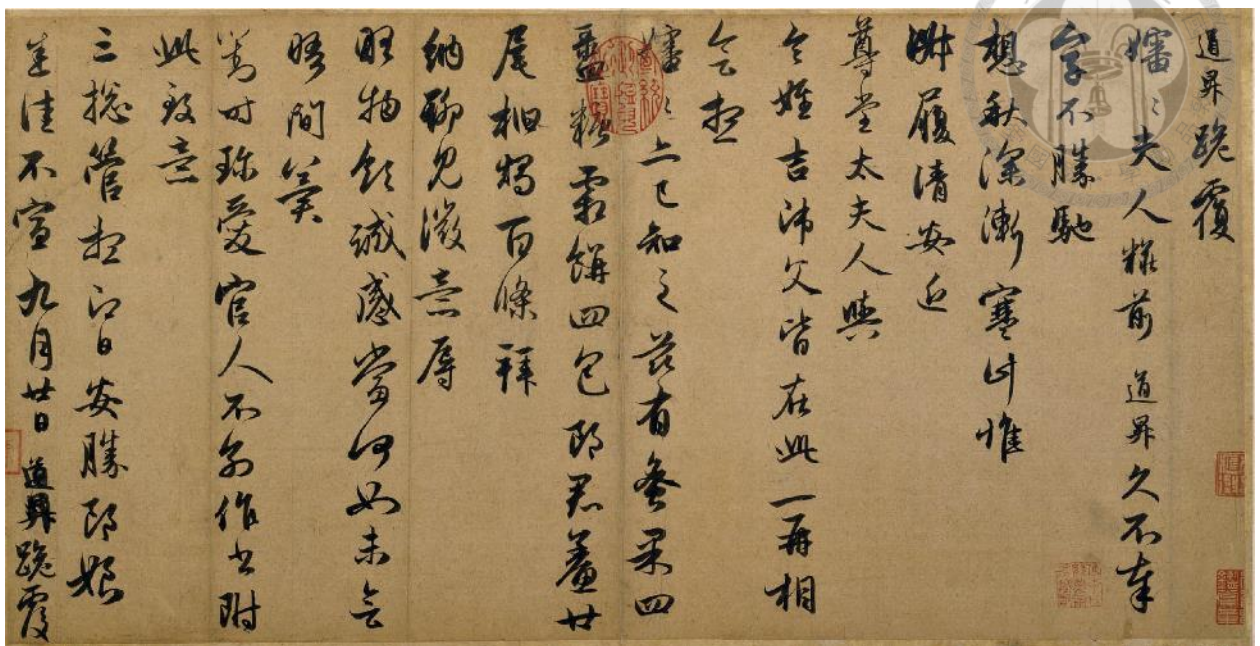 道昇跪覆
嬸ミ夫人糚前道昇久不奉
字不勝馳
想秋深漸寒計惟
淑履清安近
尊堂太夫人與
令姪吉師父皆在此一再相
會想
嬸ミ亦已知之茲有蜜果四
盝糖霜餅四包郎君鯗廿
尾柏燭百條拜
納聊見微意辱
物領誠感當何如未會
晤間冀
對時珍愛官人不別作書附
此致意
三總管想即日安勝郎娘
佳不宣九月廿日道昇跪覆